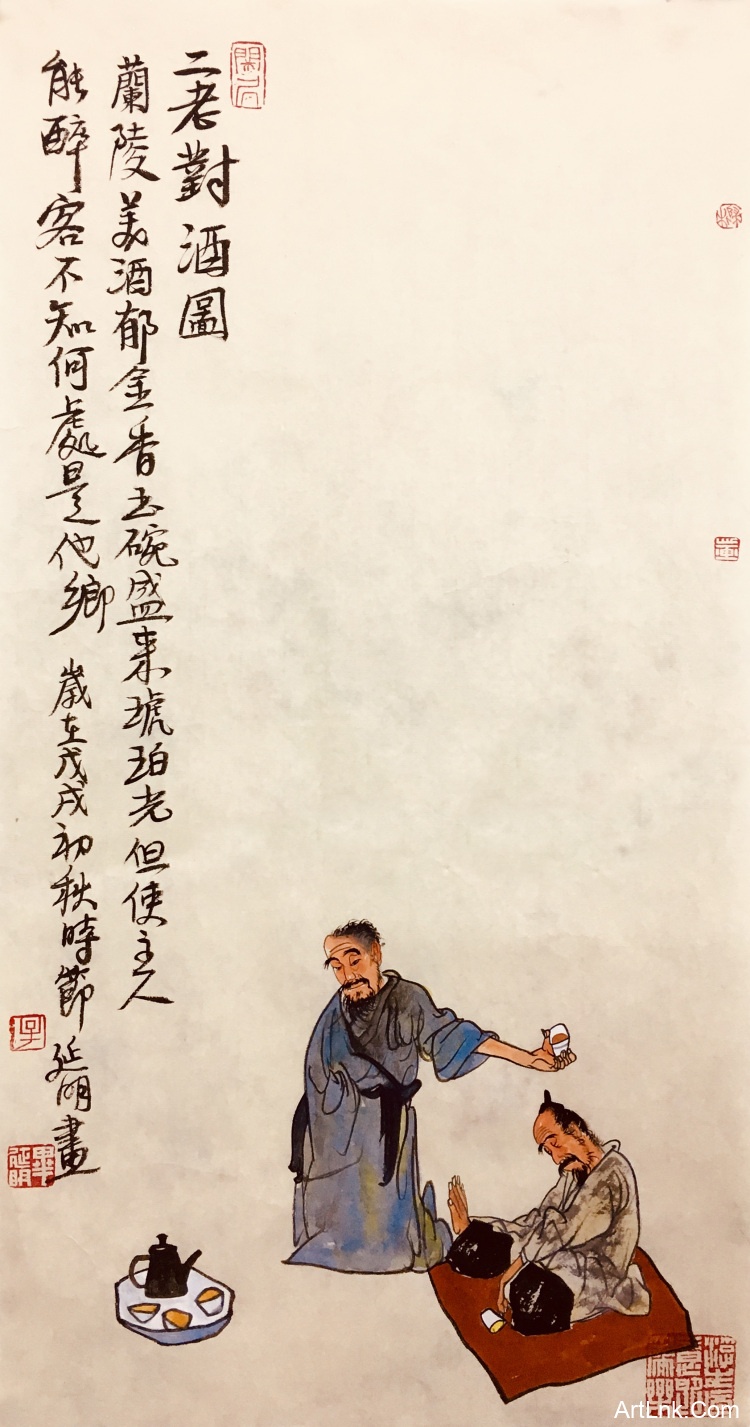 二老對酒圖
蘭陵美酒郁金香玉碗盛来琥珀光但使主人
能醉客不知何處是他鄉 歲在戊戌初秋時節 延明畫
畢延明
ArtLnk.Com